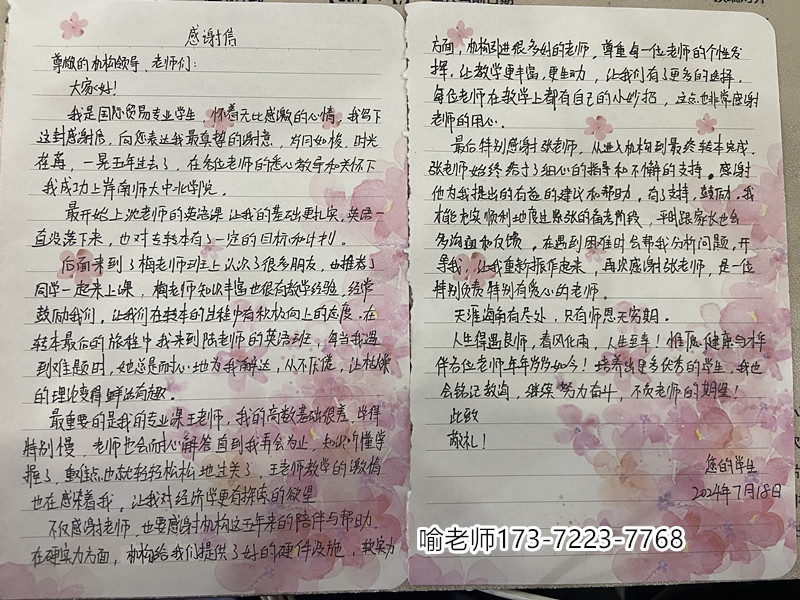 感谢信
尊敬的机构领导、老师们:
大家好!
我是国际贸易专业学生,怀着无比感激的心情,我写下
这封感谢信,向您表达我最真挚的谢意,岁月如梭,时光
荏苒,一晃五年过去了,在各位老师的悉心教导和关怀下
我成功上岸南师大中北学院。
最开始上沈老师的英语课,让我的基础更扎实,英语一
直没落下来,也对专转本有了一定的目标和计划。
后面来到了梅老师班上认识了很多朋友,也推荐了
同学一起来上课,梅老师知识丰富也很有教学经验,经常
鼓励我们,让我们在转本的过程中有积极向上的态度。在
转本最后的旅程中我来到陆老师的英语班,每当我遇
到难题时,她总是耐心地为我解达,从不厌倦,让枯燥
的理论变得鲜活有趣。
最重要的是我的专业课王老师,我的高数基础很差,学得
特别慢,老师也会耐心解答直到我弄会为止,知识听懂学
握了,重难点也就轻轻松松地过关了,王老师教学的激情
也在感染着我,让我对经济学更有探索的欲望
不仅感谢老师,也要感谢机构这五年来的陪伴与帮助.
在硬实力方面,机构给我们提供了好的硬件设施,软实力
方面,机构引进很多好的老师,尊重每一位老师的个性发
挥,让教学更丰富,更生动,让我们有了更多的选择,
每位老师在教学上都有自己的小妙招,这点也非常感谢
老师的用心.
最后特别感谢张老师,从进入机构到最终转本完成,
张老师始终给予了细心的指导和不懈的支持。感谢
他为我提出的有益的建议和帮助,有了支持,鼓励,我
才能老实顺利地度过紧张的备考阶段,平时跟家长也会
多沟通和反馈,在遇到困难时会帮我分析问题,开
导我,让我重新振作起来,再次感谢张老师,是一位
特别负责特别有爱心的老师。
天涯海角有尽处,只有师恩无穷期。
人生得遇良师,春风化雨,人生至幸!惟愿健康与才华
伴各位老师年年岁岁如今!培养出更多优秀的学生,我也
会铭记教诲,继续努力奋斗,不负老师的期望!
此致
敬礼!
您的学生
2024年7月18日
喻老师173-7223-7768